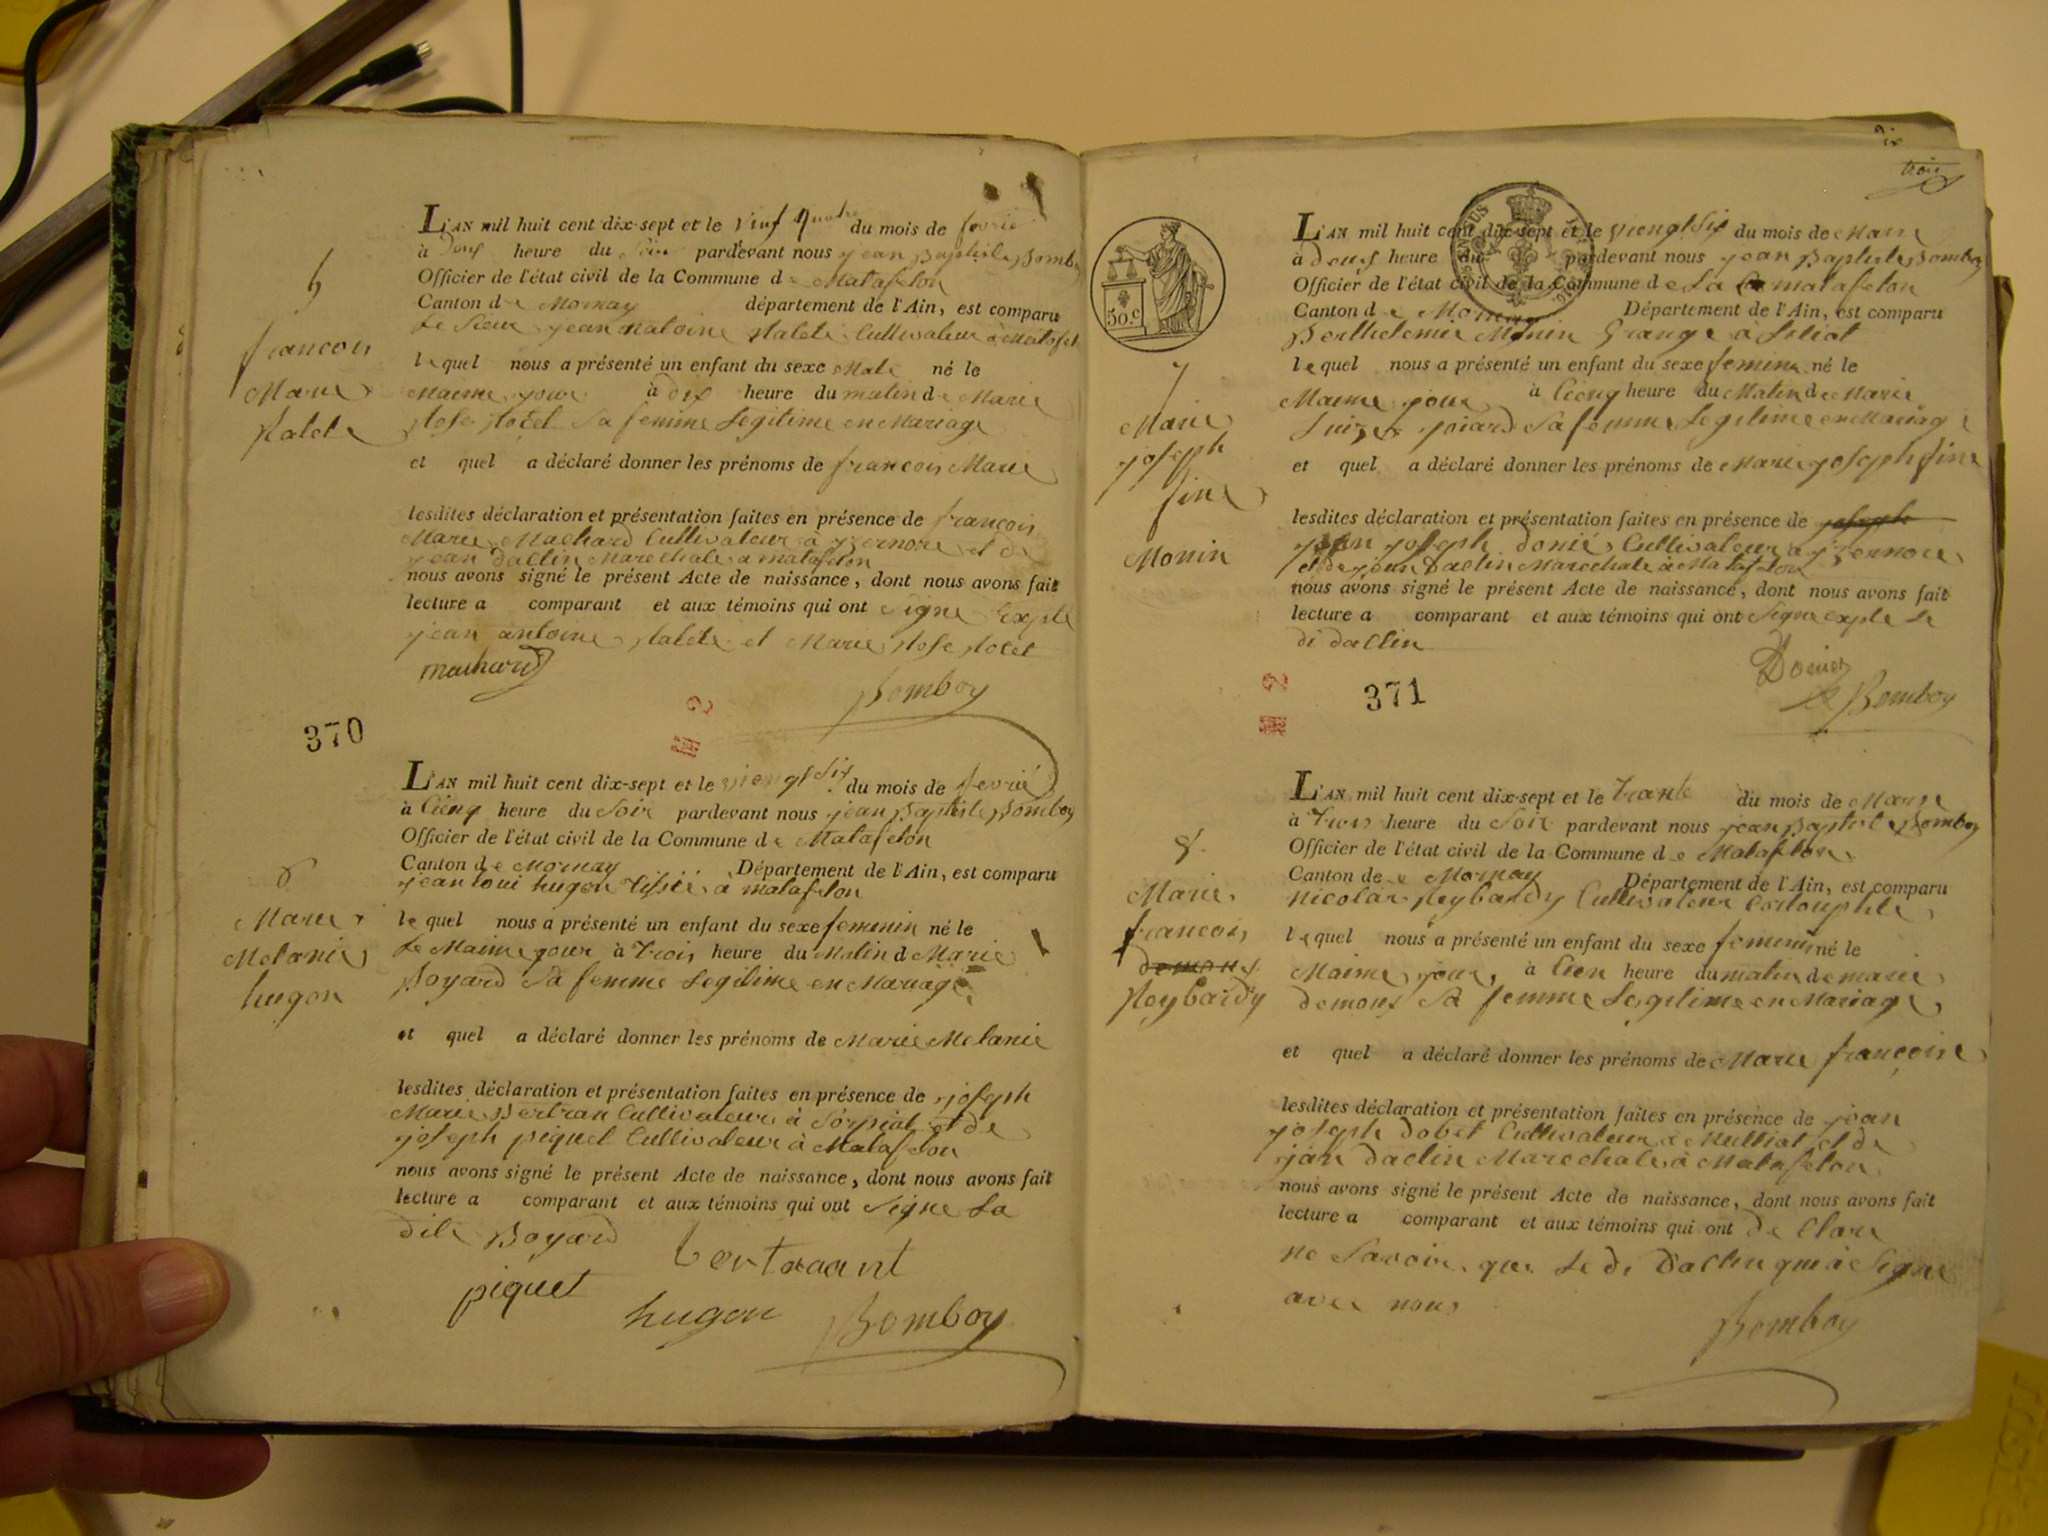 5
francois
Marie
L'AN mil huit cent dix-sept et le vint quatre du mois de fevrié
à heure du soir pardevant nous jean Baptiste Bomboy
Officier de l'état civil de la Commune de Matafelon
Canton de Mornay département de l'Ain, est comparu
Le Sieur jean Cultivateur à
lequel nous a présenté un enfant du sexe Male né le
Maime jour à dix heure du matin de Marie
Rose sa femme Legitime en Mariage
et quel a déclaré donner les prénoms de francois Marie
lesdites déclaration et présentation faites en présence de francois
Marie Machard Cultivateur à yzernore et de
jean Daclin Marechale a matafelon
nous avons signé le présent Acte de naissance, dont nous avons fait
lecture a comparant et aux témoins qui ont Signe Exple
jean antoine et Marie Rose
machard
Bomboy
370
M 2
6
Marie
Melanie
hugon
L'AN mil huit cent dix-sept et le viengt six du mois de fevrié
à Cienq heure du Soir pardevant nous jean Baptiste Bomboy
Officier de l'état civil de la Commune de Matafelon
Canton de Mornay Département de l'Ain, est comparu
jean loui hugon à matafelon
lequel nous a présenté un enfant du sexe feminin né le
Le Maime jour à trois heure du Matin de Marie
Boyard Sa femme Legitime en Mariage
et quel a déclaré donner les prénoms de Marie Melanie
lesdites déclaration et présentation faites en présence de joseph
Marie Bertran Cultivateur à Sorpiat et de
joseph piquet Cultivateur à Matafelon
nous avons signé le présent Acte de naissance, dont nous avons fait
lecture a comparant et aux témoins qui ont Signe La
dite Boyard
bertraant
piquet
hugon Bomboy
trois
50.c
7
Marie
joseph
fine
Monin
L'AN mil huit cent dix-sept et le viengt six du mois de Mars
à heure du pardevant nous jean Baptiste Bomboy
Officier de l'état civil de la Commune de La matafelon
Canton de Mornay Département de l'Ain, est comparu
Berthelemie Monin Grangé à
lequel nous a présenté un enfant du sexe feminin né le
Maime jour à Cienq heure du Matin de Marie
Sa femme Legitime en Mariage
et quel a déclaré donner les prénoms de Marie josephfine
lesdites déclaration et présentation faites en présence de joseph
jean joseph Cultivateur a yzernore
et de jean Daclin Marechale à Matafelon
nous avons signé le présent Acte de naissance, dont nous avons fait
lecture a comparant et aux témoins qui ont Signe exple Le
di daclin
Bomboy
M 2
371
8
Marie
francois
demons
Reybardy
L'AN mil huit cent dix-sept et le trante du mois de Mars
à trois heure du Soir pardevant nous jean Baptiste Bomboy
Officier de l'état civil de la Commune de Matafelon
Canton de Mornay Département de l'Ain, est comparu
Nicolas Reybardy Cultivateur
lequel nous a présenté un enfant du sexe feminin né le
Maime jour à Cien heure du matin de marie
demons Sa femme Legitime en Mariage
et quel a déclaré donner les prénoms de Marie françoise
lesdites déclaration et présentation faites en présence de jean
joseph Cultivateur a et de
jan Daclin Marechale à Matafelon
nous avons signé le présent Acte de naissance, dont nous avons fait
lecture a comparant et aux témoins qui ont de Clare
ne Savoir que Le di Daclin qui à Signe
avec nous
Bomboy